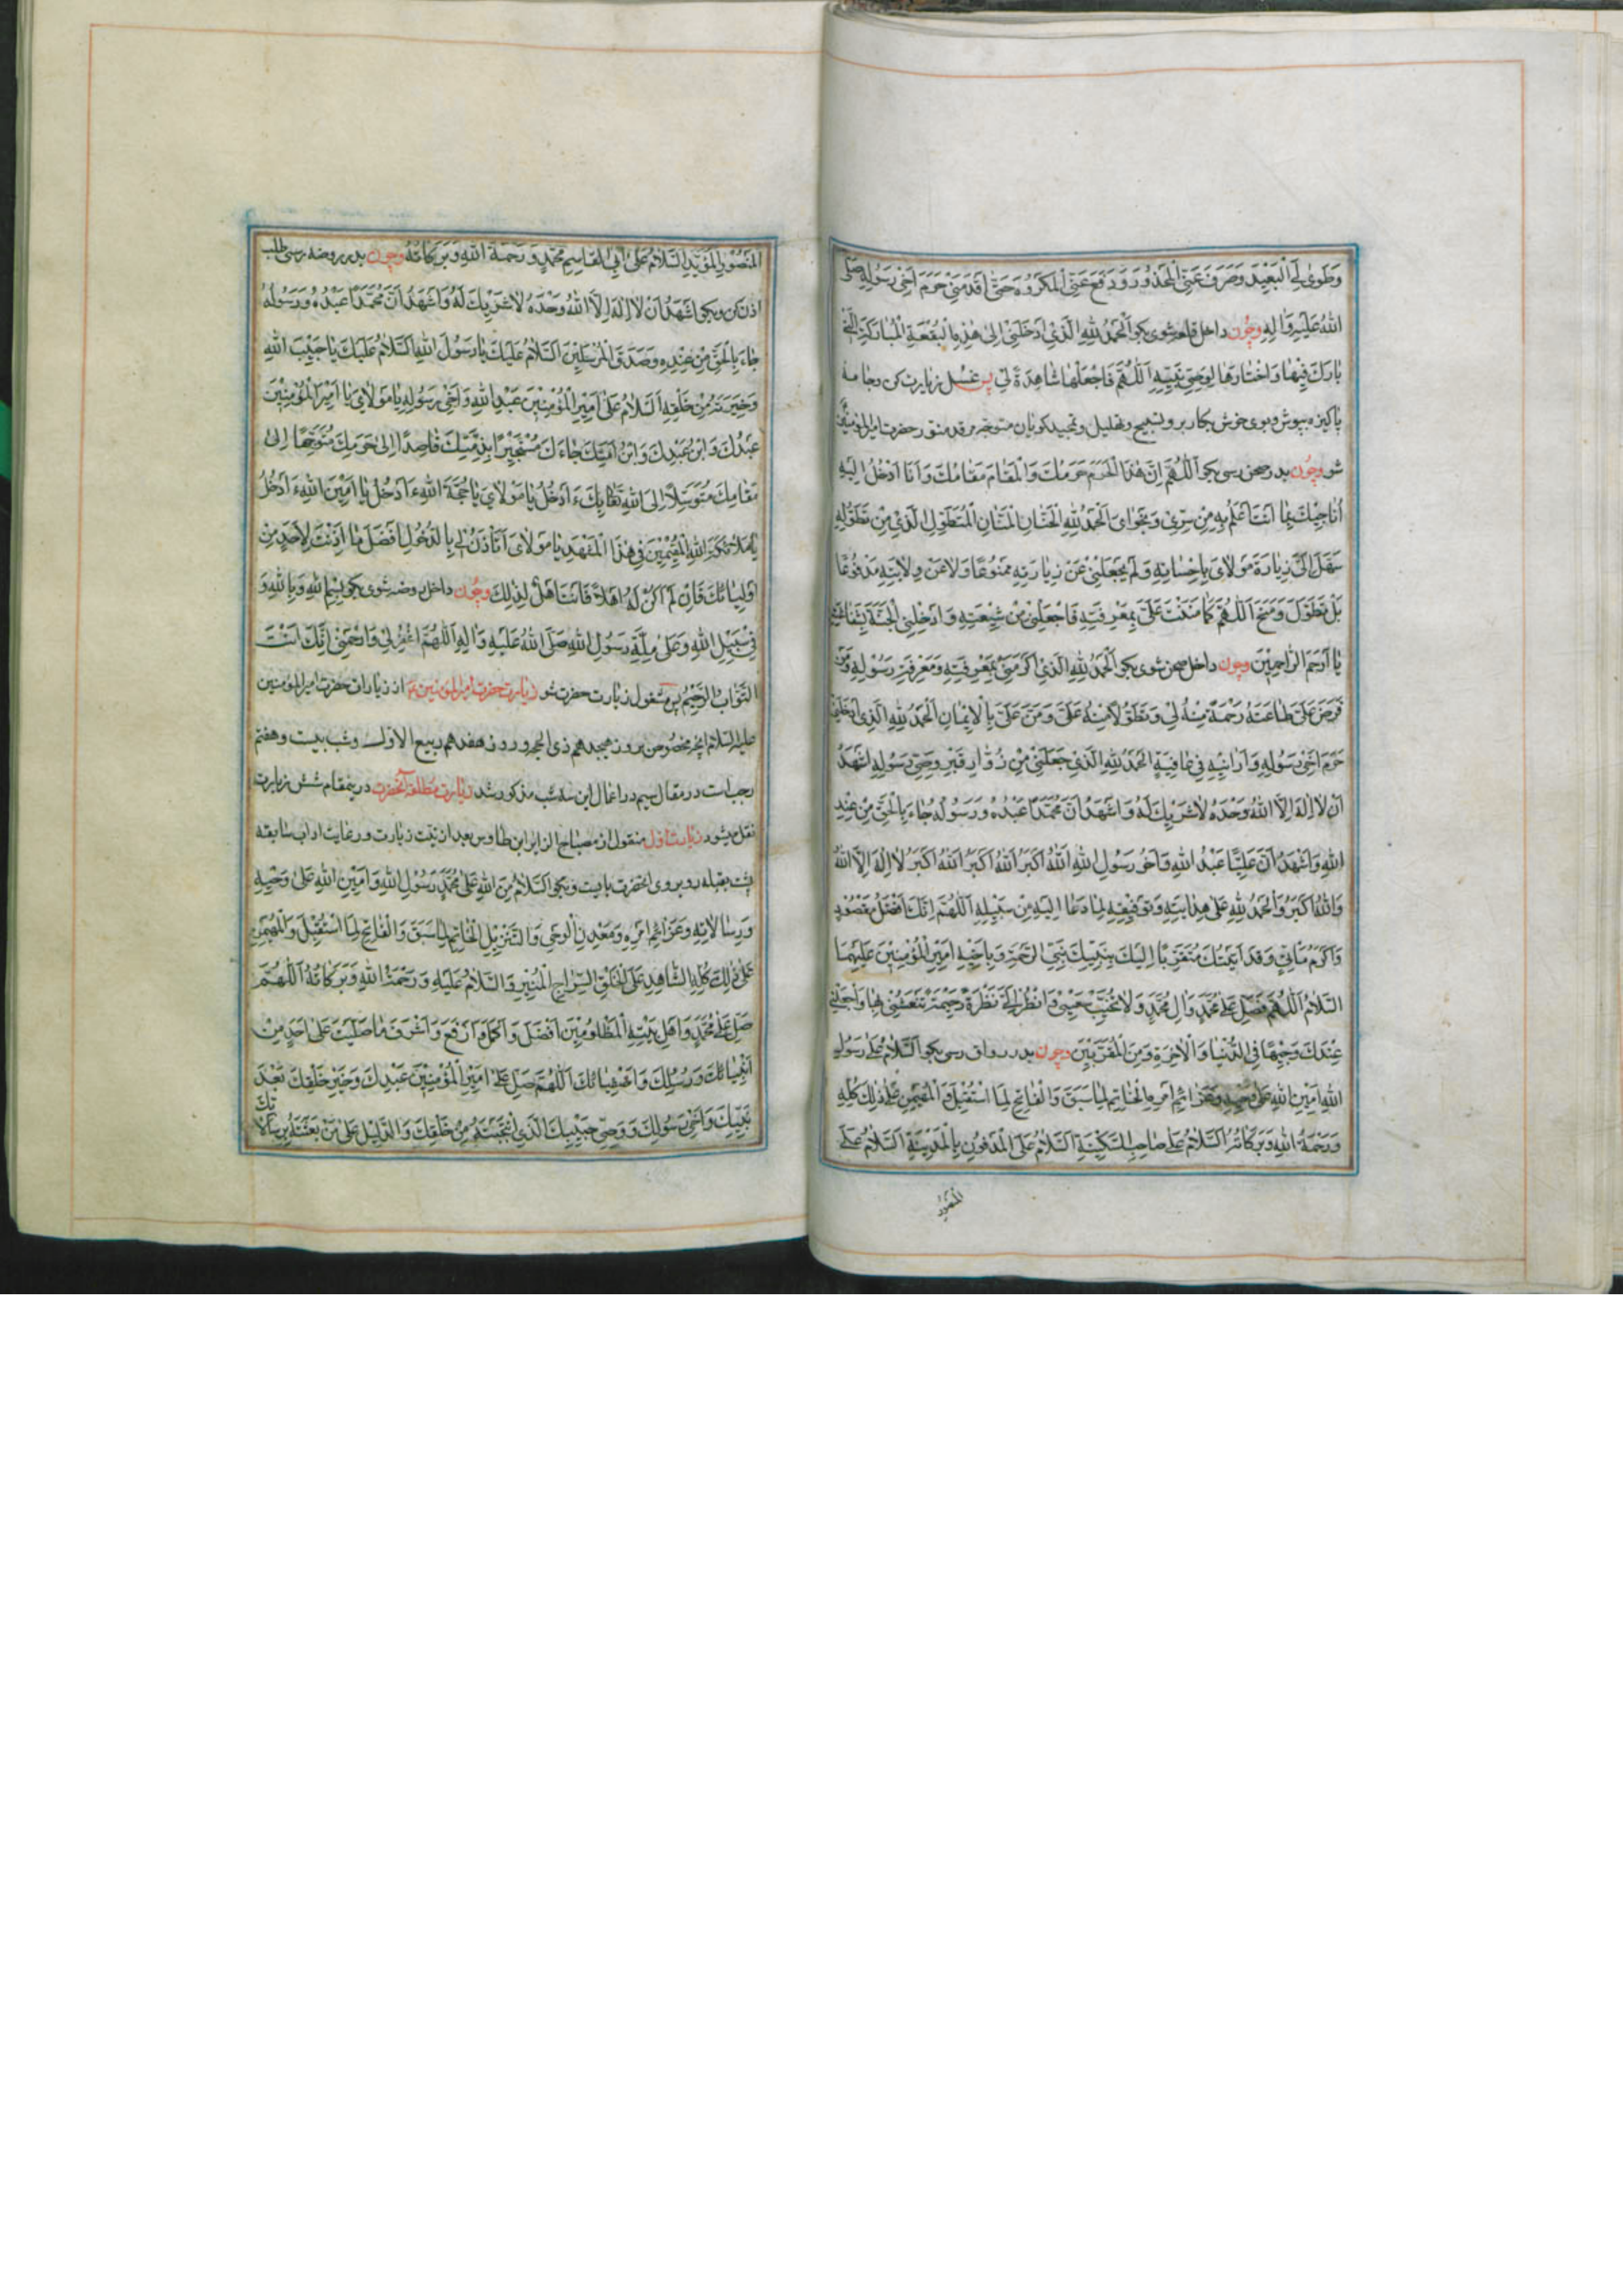 وَطَوىٰ لِيَ الْبَعِيدَ وَصَرَفَ عَنِّي الْمَحْذُورَ وَدَفَعَ عَنِّي الْمَكْرُوهَ حَتّٰى أَقْدَمَنِي حَرَمَ أَخِي رَسُولِهِ صَلَّى
اللّٰهُ عَلَيْهِ وَاٰلِهِ وچون داخل قلعه شوی بگو اَلْحَمْدُ لِلّٰهِ الَّذِي أَدْخَلَنِي إِلىٰ هٰذِهِ الْبُقْعَةِ الْمُبَارَكَةِ الَّتِي
بَارَكَ فِيهَا وَاخْتَارَهَا لِوَصِيِّ نَبِيِّهِ اَللّٰهُمَّ فَاجْعَلْهَا شَاهِدَةً لِي پس غسل زیارت کن وجامهٔ
پاکیزه بپوش وبوی خوش بکار بر وتسبیح وتهلیل وتمجید گویان متوجه مرقد منور حضرت امیرالمؤمنین
شو وچون بدر صحن رسی بگو اَللّٰهُمَّ إِنَّ هٰذَا الْحَرَمَ حَرَمُكَ وَالْمَقَامَ مَقَامُكَ وَأَنَا أَدْخُلُ إِلَيْهِ
أُنَاجِيكَ بِمَا أَنْتَ أَعْلَمُ بِهِ مِنْ سِرِّي وَنَجْوَايَ اَلْحَمْدُ لِلّٰهِ الْحَنَّانِ الْمَنَّانِ الْمُتَطَوِّلِ الَّذِي مِنْ تَطَوُّلِهِ
سَهَّلَ لِي زِيَارَةَ مَوْلَايَ بِإِحْسَانِهِ وَلَمْ يَجْعَلْنِي عَنْ زِيَارَتِهِ مَمْنُوعًا وَلَا عَنْ وِلَايَتِهِ مَدْفُوعًا
بَلْ تَطَوَّلَ وَمَنَحَ اَللّٰهُمَّ كَمَا مَنَنْتَ عَلَيَّ بِمَعْرِفَتِهِ فَاجْعَلْنِي مِنْ شِيعَتِهِ وَأَدْخِلْنِي الْجَنَّةَ بِشَفَاعَتِهِ
يَا أَرْحَمَ الرَّاحِمِينَ وچون داخل صحن شوی بگو اَلْحَمْدُ لِلّٰهِ الَّذِي أَكْرَمَنِي بِمَعْرِفَتِهِ وَمَعْرِفَةِ رَسُولِهِ وَمَنْ
فَرَضَ عَلَيَّ طَاعَتَهُ رَحْمَةً مِنْهُ لِي وَتَطَوُّلًا مِنْهُ عَلَيَّ وَمَنَّ عَلَيَّ بِالْإِيمَانِ اَلْحَمْدُ لِلّٰهِ الَّذِي أَدْخَلَنِي
حَرَمَ أَخِي رَسُولِهِ وَأَرَانِيهِ فِي عَافِيَةٍ اَلْحَمْدُ لِلّٰهِ الَّذِي جَعَلَنِي مِنْ زُوَّارِ قَبْرِ وَصِيِّ رَسُولِهِ أَشْهَدُ
أَنْ لَا إِلٰهَ إِلَّا اللّٰهُ وَحْدَهُ لَا شَرِيكَ لَهُ وَأَشْهَدُ أَنَّ مُحَمَّدًا عَبْدُهُ وَرَسُولُهُ جَاءَ بِالْحَقِّ مِنْ عِنْدِ
اللّٰهِ وَأَشْهَدُ أَنَّ عَلِيًّا عَبْدُ اللّٰهِ وَأَخُو رَسُولِ اللّٰهِ اَللّٰهُ أَكْبَرُ اَللّٰهُ أَكْبَرُ اَللّٰهُ أَكْبَرُ لَا إِلٰهَ إِلَّا اللّٰهُ
وَاللّٰهُ أَكْبَرُ وَالْحَمْدُ لِلّٰهِ عَلىٰ هِدَايَتِهِ وَتَوْفِيقِهِ لِمَا دَعَا إِلَيْهِ مِنْ سَبِيلِهِ اَللّٰهُمَّ إِنَّكَ أَفْضَلُ مَقْصُودٍ
وَأَكْرَمُ مَأْتِيٍّ وَقَدْ أَتَيْتُكَ مُتَقَرِّبًا إِلَيْكَ بِنَبِيِّكَ نَبِيِّ الرَّحْمَةِ وَبِأَخِيهِ أَمِيرِ الْمُؤْمِنِينَ عَلَيْهِمَا
السَّلَامُ اَللّٰهُمَّ فَصَلِّ عَلىٰ مُحَمَّدٍ وَاٰلِ مُحَمَّدٍ وَلَا تُخَيِّبْ سَعْيِي وَانْظُرْ إِلَيَّ نَظْرَةً رَحِيمَةً تَنْعَشُنِي بِهَا وَاجْعَلْنِي
عِنْدَكَ وَجِيهًا فِي الدُّنْيَا وَالْاٰخِرَةِ وَمِنَ الْمُقَرَّبِينَ وچون بدر رواق رسی بگو اَلسَّلَامُ عَلىٰ رَسُولِ
اللّٰهِ أَمِينِ اللّٰهِ عَلىٰ وَحْيِهِ وَعَزَائِمِ أَمْرِهِ الْخَاتِمِ لِمَا سَبَقَ وَالْفَاتِحِ لِمَا اسْتُقْبِلَ وَالْمُهَيْمِنِ عَلىٰ ذٰلِكَ كُلِّهِ
وَرَحْمَةُ اللّٰهِ وَبَرَكَاتُهُ اَلسَّلَامُ عَلىٰ صَاحِبِ السَّكِينَةِ اَلسَّلَامُ عَلَى الْمَدْفُونِ بِالْمَدِينَةِ اَلسَّلَامُ عَلَى
المنصور
الْمَنْصُورِ الْمُؤَيَّدِ اَلسَّلَامُ عَلىٰ أَبِي الْقَاسِمِ مُحَمَّدٍ وَرَحْمَةُ اللّٰهِ وَبَرَكَاتُهُ وچون بدر روضه رسی طلب
اذن کن وبگو أَشْهَدُ أَنْ لَا إِلٰهَ إِلَّا اللّٰهُ وَحْدَهُ لَا شَرِيكَ لَهُ وَأَشْهَدُ أَنَّ مُحَمَّدًا عَبْدُهُ وَرَسُولُهُ
جَاءَ بِالْحَقِّ مِنْ عِنْدِهِ وَصَدَّقَ الْمُرْسَلِينَ اَلسَّلَامُ عَلَيْكَ يَا رَسُولَ اللّٰهِ اَلسَّلَامُ عَلَيْكَ يَا حَبِيبَ اللّٰهِ
وَخِيَرَتَهُ مِنْ خَلْقِهِ اَلسَّلَامُ عَلىٰ أَمِيرِ الْمُؤْمِنِينَ عَبْدِ اللّٰهِ وَأَخِي رَسُولِهِ يَا مَوْلَايَ يَا أَمِيرَ الْمُؤْمِنِينَ
عَبْدُكَ وَابْنُ عَبْدِكَ وَابْنُ أَمَتِكَ جَاءَكَ مُسْتَجِيرًا بِذِمَّتِكَ قَاصِدًا إِلىٰ حَرَمِكَ مُتَوَجِّهًا إِلىٰ
مَقَامِكَ مُتَوَسِّلًا إِلَى اللّٰهِ تَعَالىٰ بِكَ ءَأَدْخُلُ يَا مَوْلَايَ يَا حُجَّةَ اللّٰهِ ءَأَدْخُلُ يَا أَمِينَ اللّٰهِ ءَأَدْخُلُ
يَا مَلَائِكَةَ اللّٰهِ الْمُقِيمِينَ فِي هٰذَا الْمَشْهَدِ يَا مَوْلَايَ أَتَأْذَنُ لِي بِالدُّخُولِ أَفْضَلَ مَا أَذِنْتَ لِأَحَدٍ مِنْ
أَوْلِيَائِكَ فَإِنْ لَمْ أَكُنْ لَهُ أَهْلًا فَأَنْتَ أَهْلٌ لِذٰلِكَ وچون داخل روضه شوی بگو بِسْمِ اللّٰهِ وَبِاللّٰهِ وَ
فِي سَبِيلِ اللّٰهِ وَعَلىٰ مِلَّةِ رَسُولِ اللّٰهِ صَلَّى اللّٰهُ عَلَيْهِ وَاٰلِهِ اَللّٰهُمَّ اغْفِرْ لِي وَارْحَمْنِي إِنَّكَ أَنْتَ
التَّوَّابُ الرَّحِيمُ پس مشغول زیارت حضرت شو زیارت حضرت امیرالمؤمنین ع از زیارات حضرت امیرالمؤمنین
علیه السلام آنچه مخصوص بروز هیجدهم ذی الحجه وروز هفدهم ربیع الاول وشب بیست وهفتم
رجب است در مقال سیم در اعمال این سه شب مذکور شد زیارت مطلقهٔ آنحضرت درینمقام شش زیارت
نقل میشود زیارت اول منقول از مصباح الزایر ابن طاوس بعد از نیت زیارت ورعایت اداب سابقه
پشت بقبله روبروی آنحضرت بایست وبگو اَلسَّلَامُ مِنَ اللّٰهِ عَلىٰ مُحَمَّدٍ رَسُولِ اللّٰهِ وَأَمِينِ اللّٰهِ عَلىٰ وَحْيِهِ
وَرِسَالَاتِهِ وَعَزَائِمِ أَمْرِهِ وَمَعْدِنِ الْوَحْيِ وَالتَّنْزِيلِ الْخَاتِمِ لِمَا سَبَقَ وَالْفَاتِحِ لِمَا اسْتُقْبِلَ وَالْمُهَيْمِنِ
عَلىٰ ذٰلِكَ كُلِّهِ الشَّاهِدِ عَلَى الْخَلْقِ السِّرَاجِ الْمُنِيرِ وَالسَّلَامُ عَلَيْهِ وَرَحْمَةُ اللّٰهِ وَبَرَكَاتُهُ اَللّٰهُمَّ
صَلِّ عَلىٰ مُحَمَّدٍ وَأَهْلِ بَيْتِهِ الْمَظْلُومِينَ أَفْضَلَ وَأَكْمَلَ وَأَرْفَعَ وَأَشْرَفَ مَا صَلَّيْتَ عَلىٰ أَحَدٍ مِنْ
أَنْبِيَائِكَ وَرُسُلِكَ وَأَصْفِيَائِكَ اَللّٰهُمَّ صَلِّ عَلىٰ أَمِيرِ الْمُؤْمِنِينَ عَبْدِكَ وَخَيْرِ خَلْقِكَ بَعْدَ
نَبِيِّكَ وَأَخِي رَسُولِكَ وَوَصِيِّ حَبِيبِكَ الَّذِي انْتَجَبْتَهُ مِنْ خَلْقِكَ وَالدَّلِيلِ عَلىٰ مَنْ بَعَثْتَهُ بِرِسَالَاتِكَ